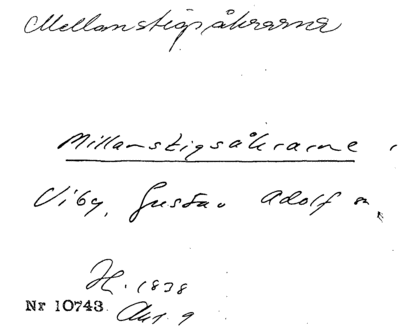 Mellanstigsåkrarna
Millanstigsåkrarne i
Viby, Gustav Adolf sn,
H. 1838
Nr 10743 Akt 9